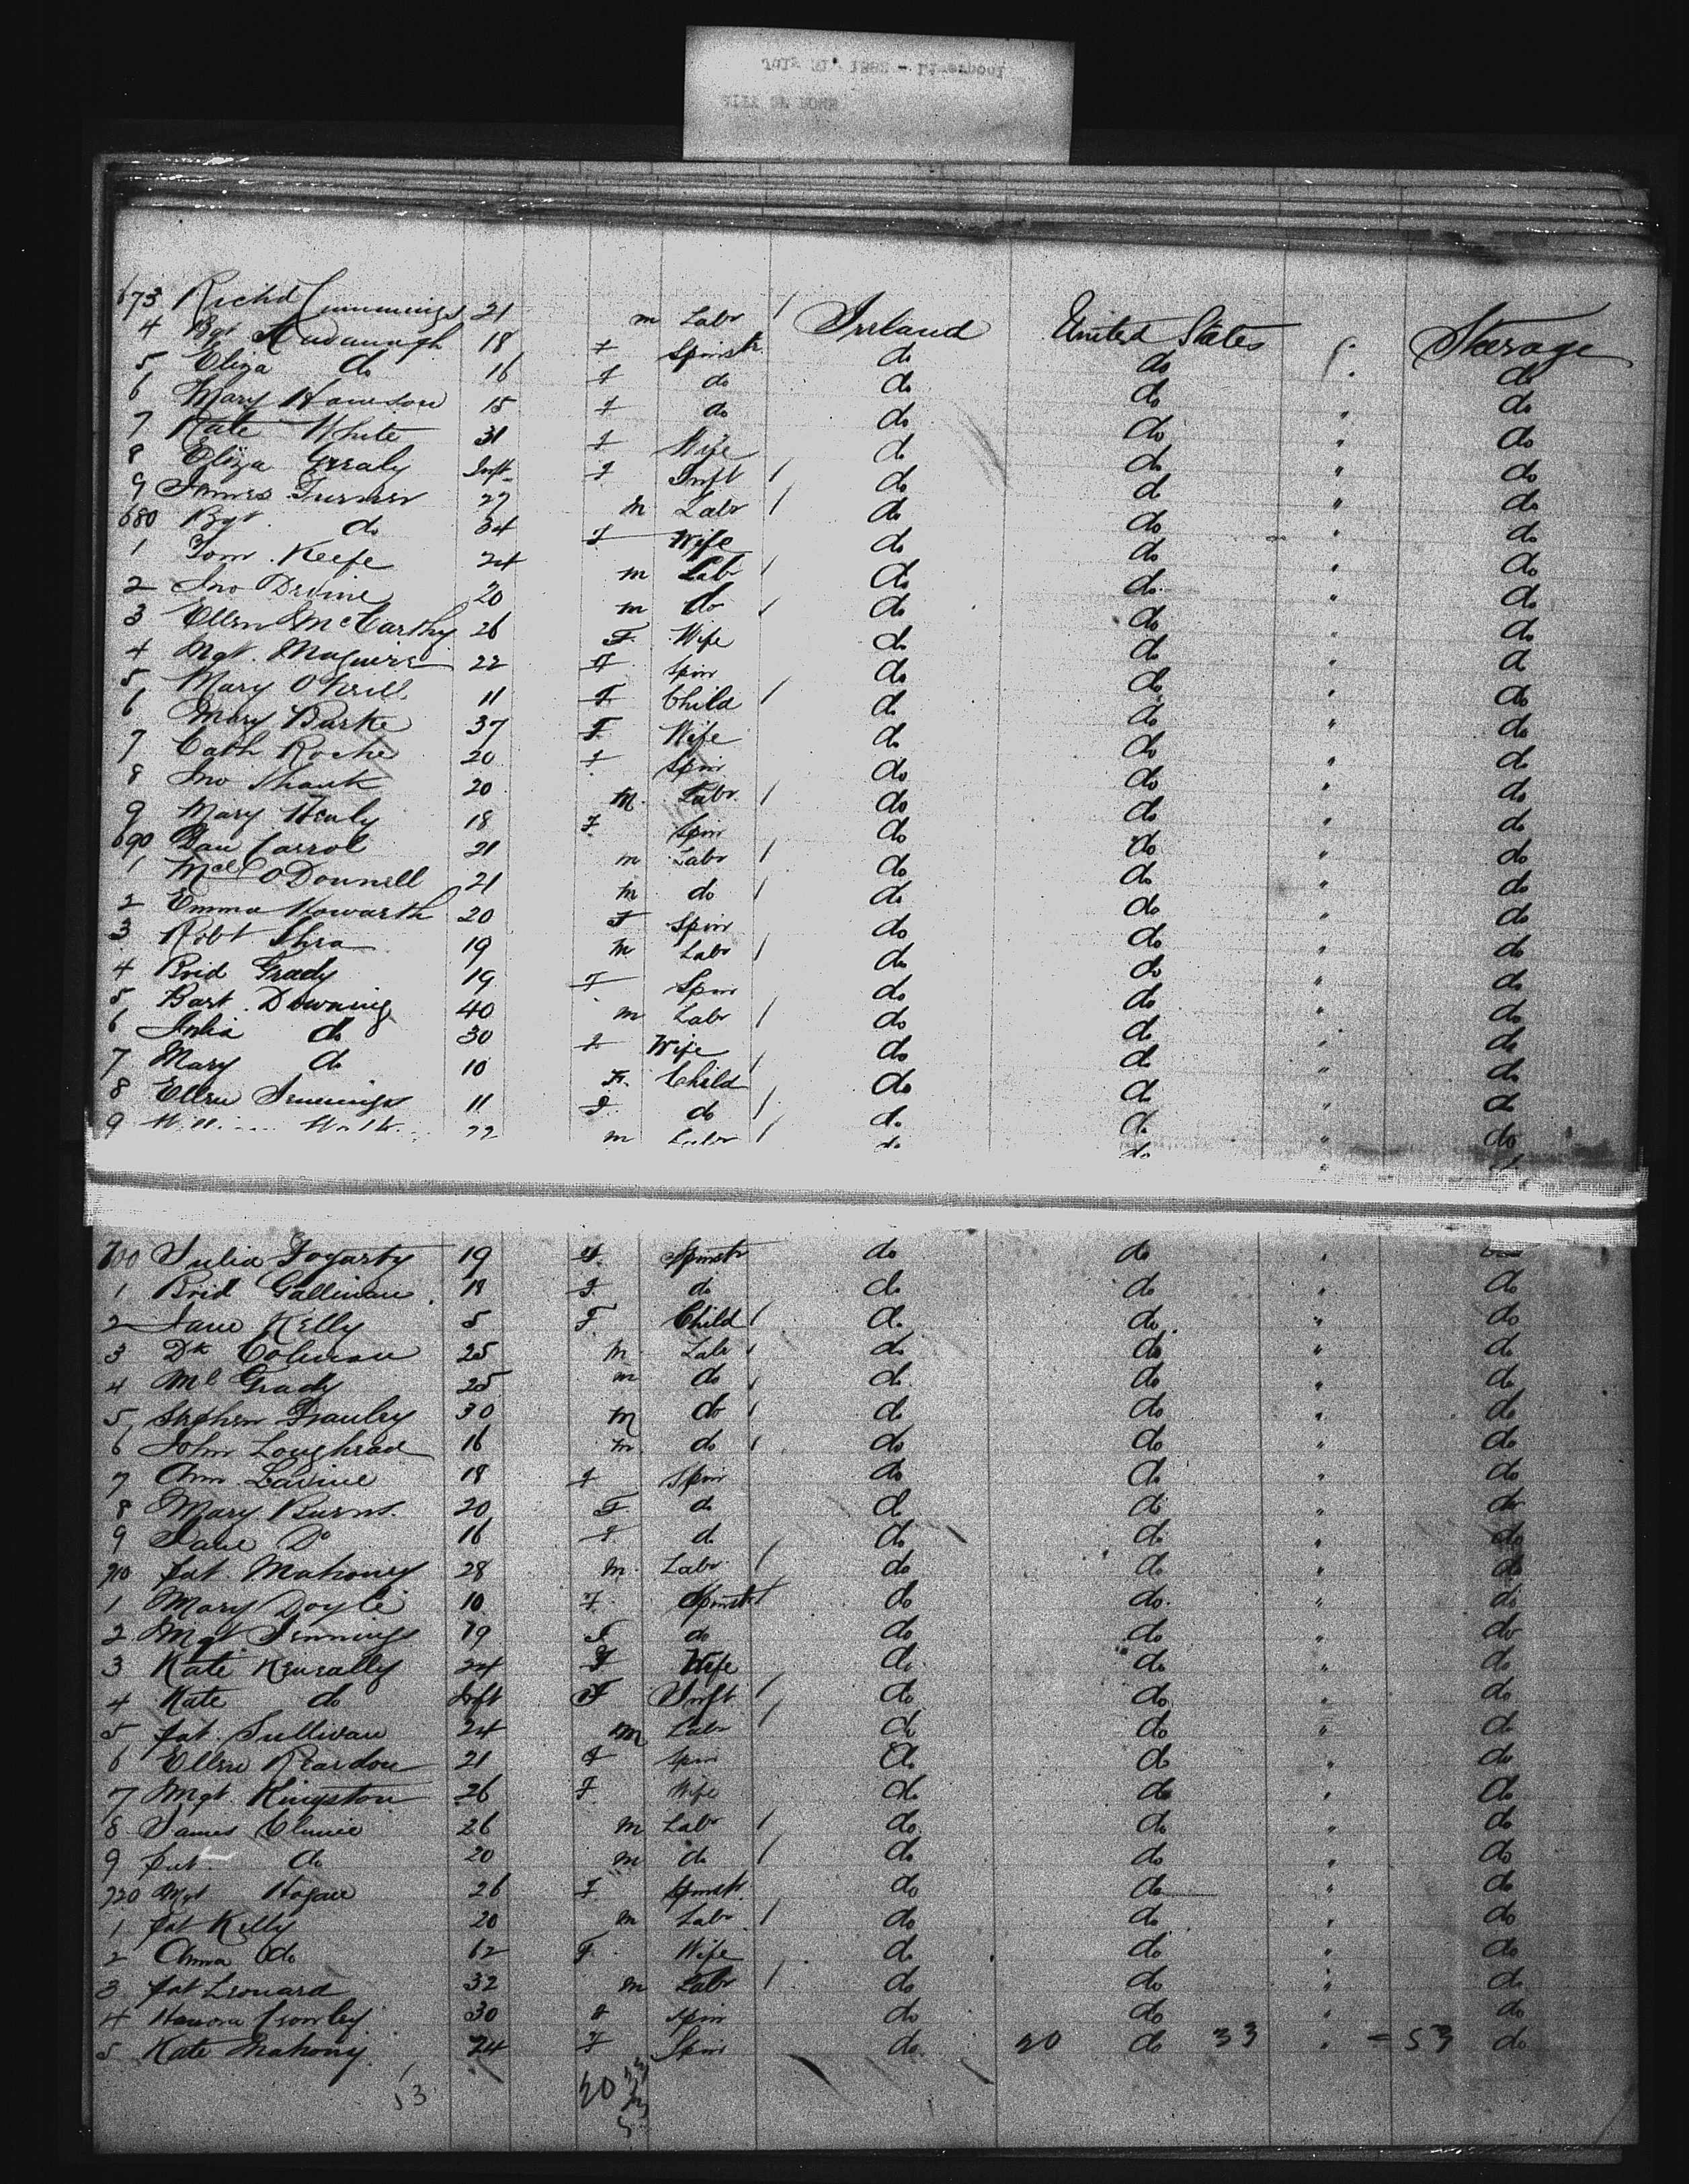 673 Richd Cummings 21 m Labr / Ireland United States " Steerage
4 Bgt Kavanagh 18 F Spinstr do do do
5 Eliza do 16 F do do do " do
6 Mary 15 F do do do " do
7 Kate White 31 F Wife do do " do
8 Eliza Grealy Inft F Inft / do do " do
9 James Turner 27 m Labr / do do " do
680 Bgt do 34 F Wife do do " do
1 Tom Keefe 24 m Lab / do do " do
2 Jno Devine 20 m do / do do " do
3 Ellen McCarthy 26 F Wife do do " do
4 Mgt. Maguire 22 F Spin do do " do
5 Mary O'Neill 11 F Child / do do " do
6 Mary Burke 37 F Wife do do " do
7 Cath Roche 20 F Spin do do " do
8 Jno 20 M. Labr / do do " do
9 Mary Healy 18 F Spin do do " do
690 Dan Carrol 21 m Labr / do do " do
1 Mcl O'Donnell 21 m do / do do " do
2 Emma Howarth 20 F Spin do do " do
3 Robt Shea 19 m Labr / do do " do
4 Brid Grady 19 F Spin do do " do
5 Bart. Downing 40 m Labr / do do " do
6 Julia do 30 F Wife do do " do
7 Mary do 10 F. Child / do do " do
8 Ellen Jennings 11 F do / do do " do
9 22 m Labr / do do " do
700 Julia Fogarty 19 F. Spinstr do do " do
1 Brid Gallivan 18 F. do do do " do
2 Jane Kelly 5 F Child / do do " do
3 Dk Colman 25 m Labr / do do " do
4 Ml Grady 25 m do / do do " do
5 Stephen 30 m do / do do " do
6 John Loughran 16 m do / do do " do
7 Ann Lavine 18 F Spin do do " do
8 Mary Burns. 20 F. do do do " do
9 Jane Do 16 F. do do do " do
710 Pat. Mahoney 28 m. Labr / do do " do
1 Mary Doyle 10 F. Spinstr do do " do
2 Mgt Jennings 19 F do do do " do
3 Kate Keneally 24 F Wife do do " do
4 Kate do Inft F Inft / do do " do
5 Pat. Sullivan 24 m Labr / do do " do
6 Ellen Reardon 21 F Spin do do " do
7 Mgt. Kingston 26 F Wife do do " do
8 James 26 m Labr / do do " do
9 Pat. do 20 m do / do do " do
720 Mgt Hogan 26 F Spinstr do do " do
1 Pat Kelly 20 m Labr / do do " do
2 Anna do 62 F. Wife do do " do
3 Pat Leonard 32 m Labr / do do " do
4 Hanora Crowley 30 F Spin do do " do
5 Kate Mahony 24 F Spin do 20 do 33 " = 53 do
53 20